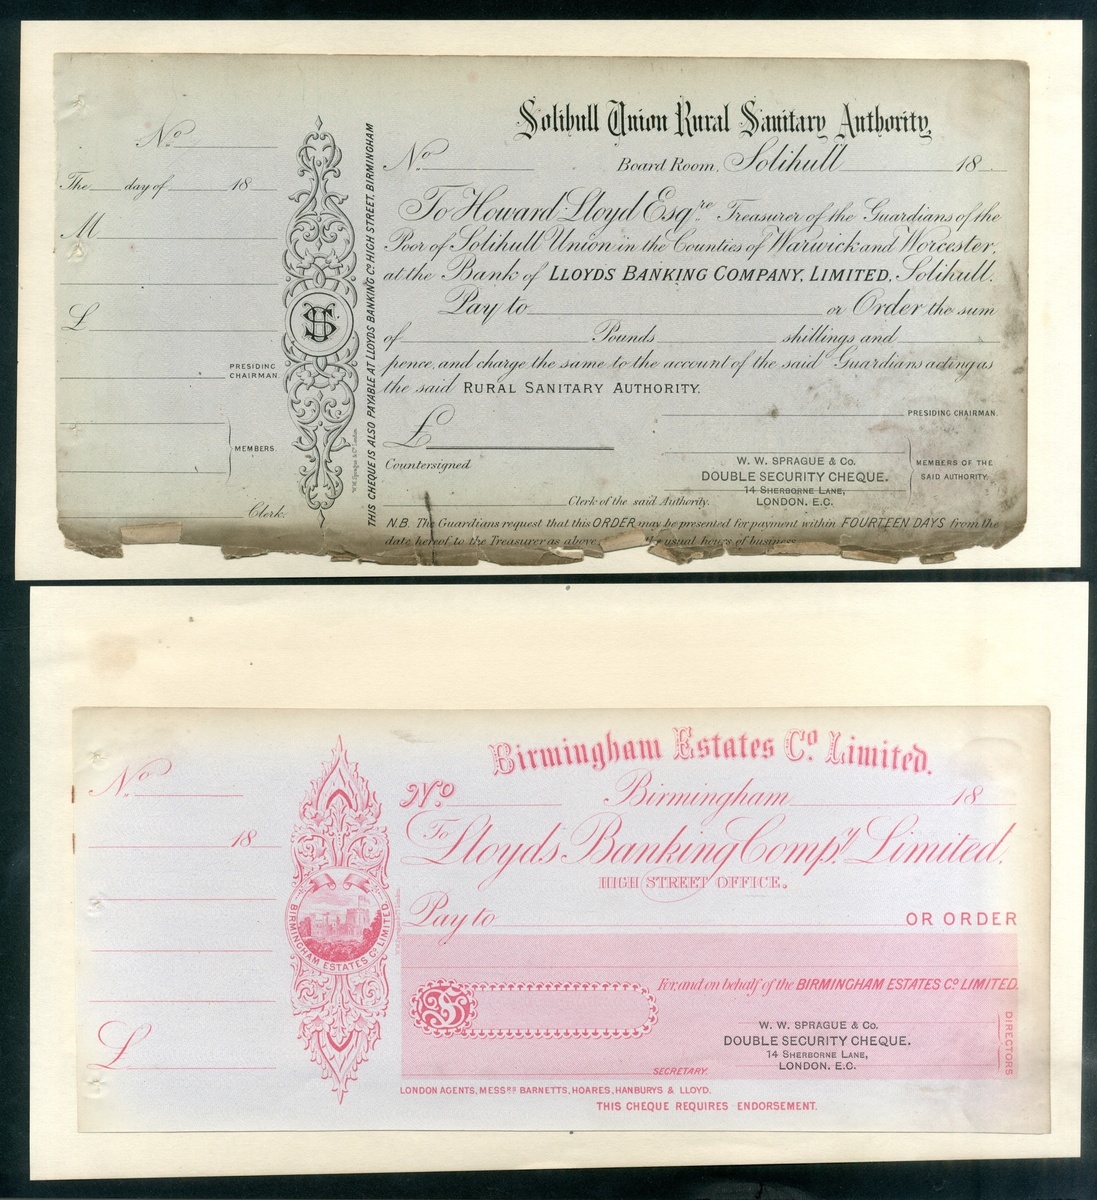 No
The day of 18
M
£
PRESIDING CHAIRMAN.
MEMBERS.
Clerk.
THIS CHEQUE IS ALSO PAYABLE AT LLOYDS BANKING Co. HIGH STREET, BIRMINGHAM
Solihull Union Rural Sanitary Authority,
No
Board Room, Solihull 18
To Howard Lloyd Esqre Treasurer of the Guardians of the
Poor of Solihull Union in the Counties of Warwick and Worcester,
at the Bank of LLOYDS BANKING COMPANY, LIMITED, Solihull.
Pay to or Order the sum
of Pounds shillings and
pence, and charge the same to the account of the said Guardians acting as
the said RURAL SANITARY AUTHORITY.
£
PRESIDING CHAIRMAN.
Countersigned
W. W. SPRAGUE & Co.
DOUBLE SECURITY CHEQUE.
14 SHERBORNE LANE,
LONDON. E.C.
MEMBERS OF THE
SAID AUTHORITY.
Clerk of the said Authority.
N.B. The Guardians request that this ORDER may be presented for payment within FOURTEEN DAYS from the
date hereof to the Treasurer as above, usual hours of business
No
18
£
BIRMINGHAM ESTATES Co LIMITED
Birmingham Estates Co. Limited.
No
Birmingham 18
To Lloyds Banking Compy Limited,
HIGH STREET OFFICE.
Pay to OR ORDER
£
For and on behalf of the BIRMINGHAM ESTATES Co LIMITED.
W. W. SPRAGUE & Co.
DOUBLE SECURITY CHEQUE.
14 SHERBORNE LANE,
LONDON. E.C.
DIRECTORS
SECRETARY.
LONDON AGENTS, MESSRS BARNETTS, HOARES, HANBURYS & LLOYD.
THIS CHEQUE REQUIRES ENDORSEMENT.